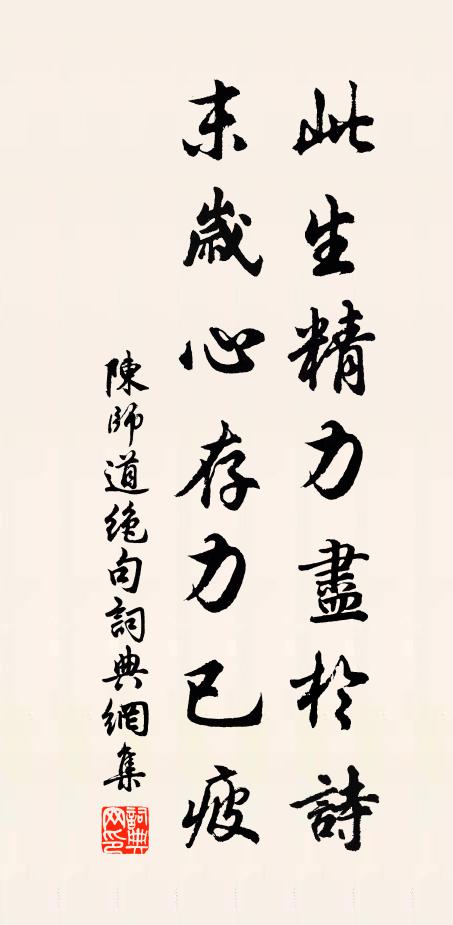 此生精力盡於詩
末歲心存力已疲
陳師道絶句詞典網集
詞典網印